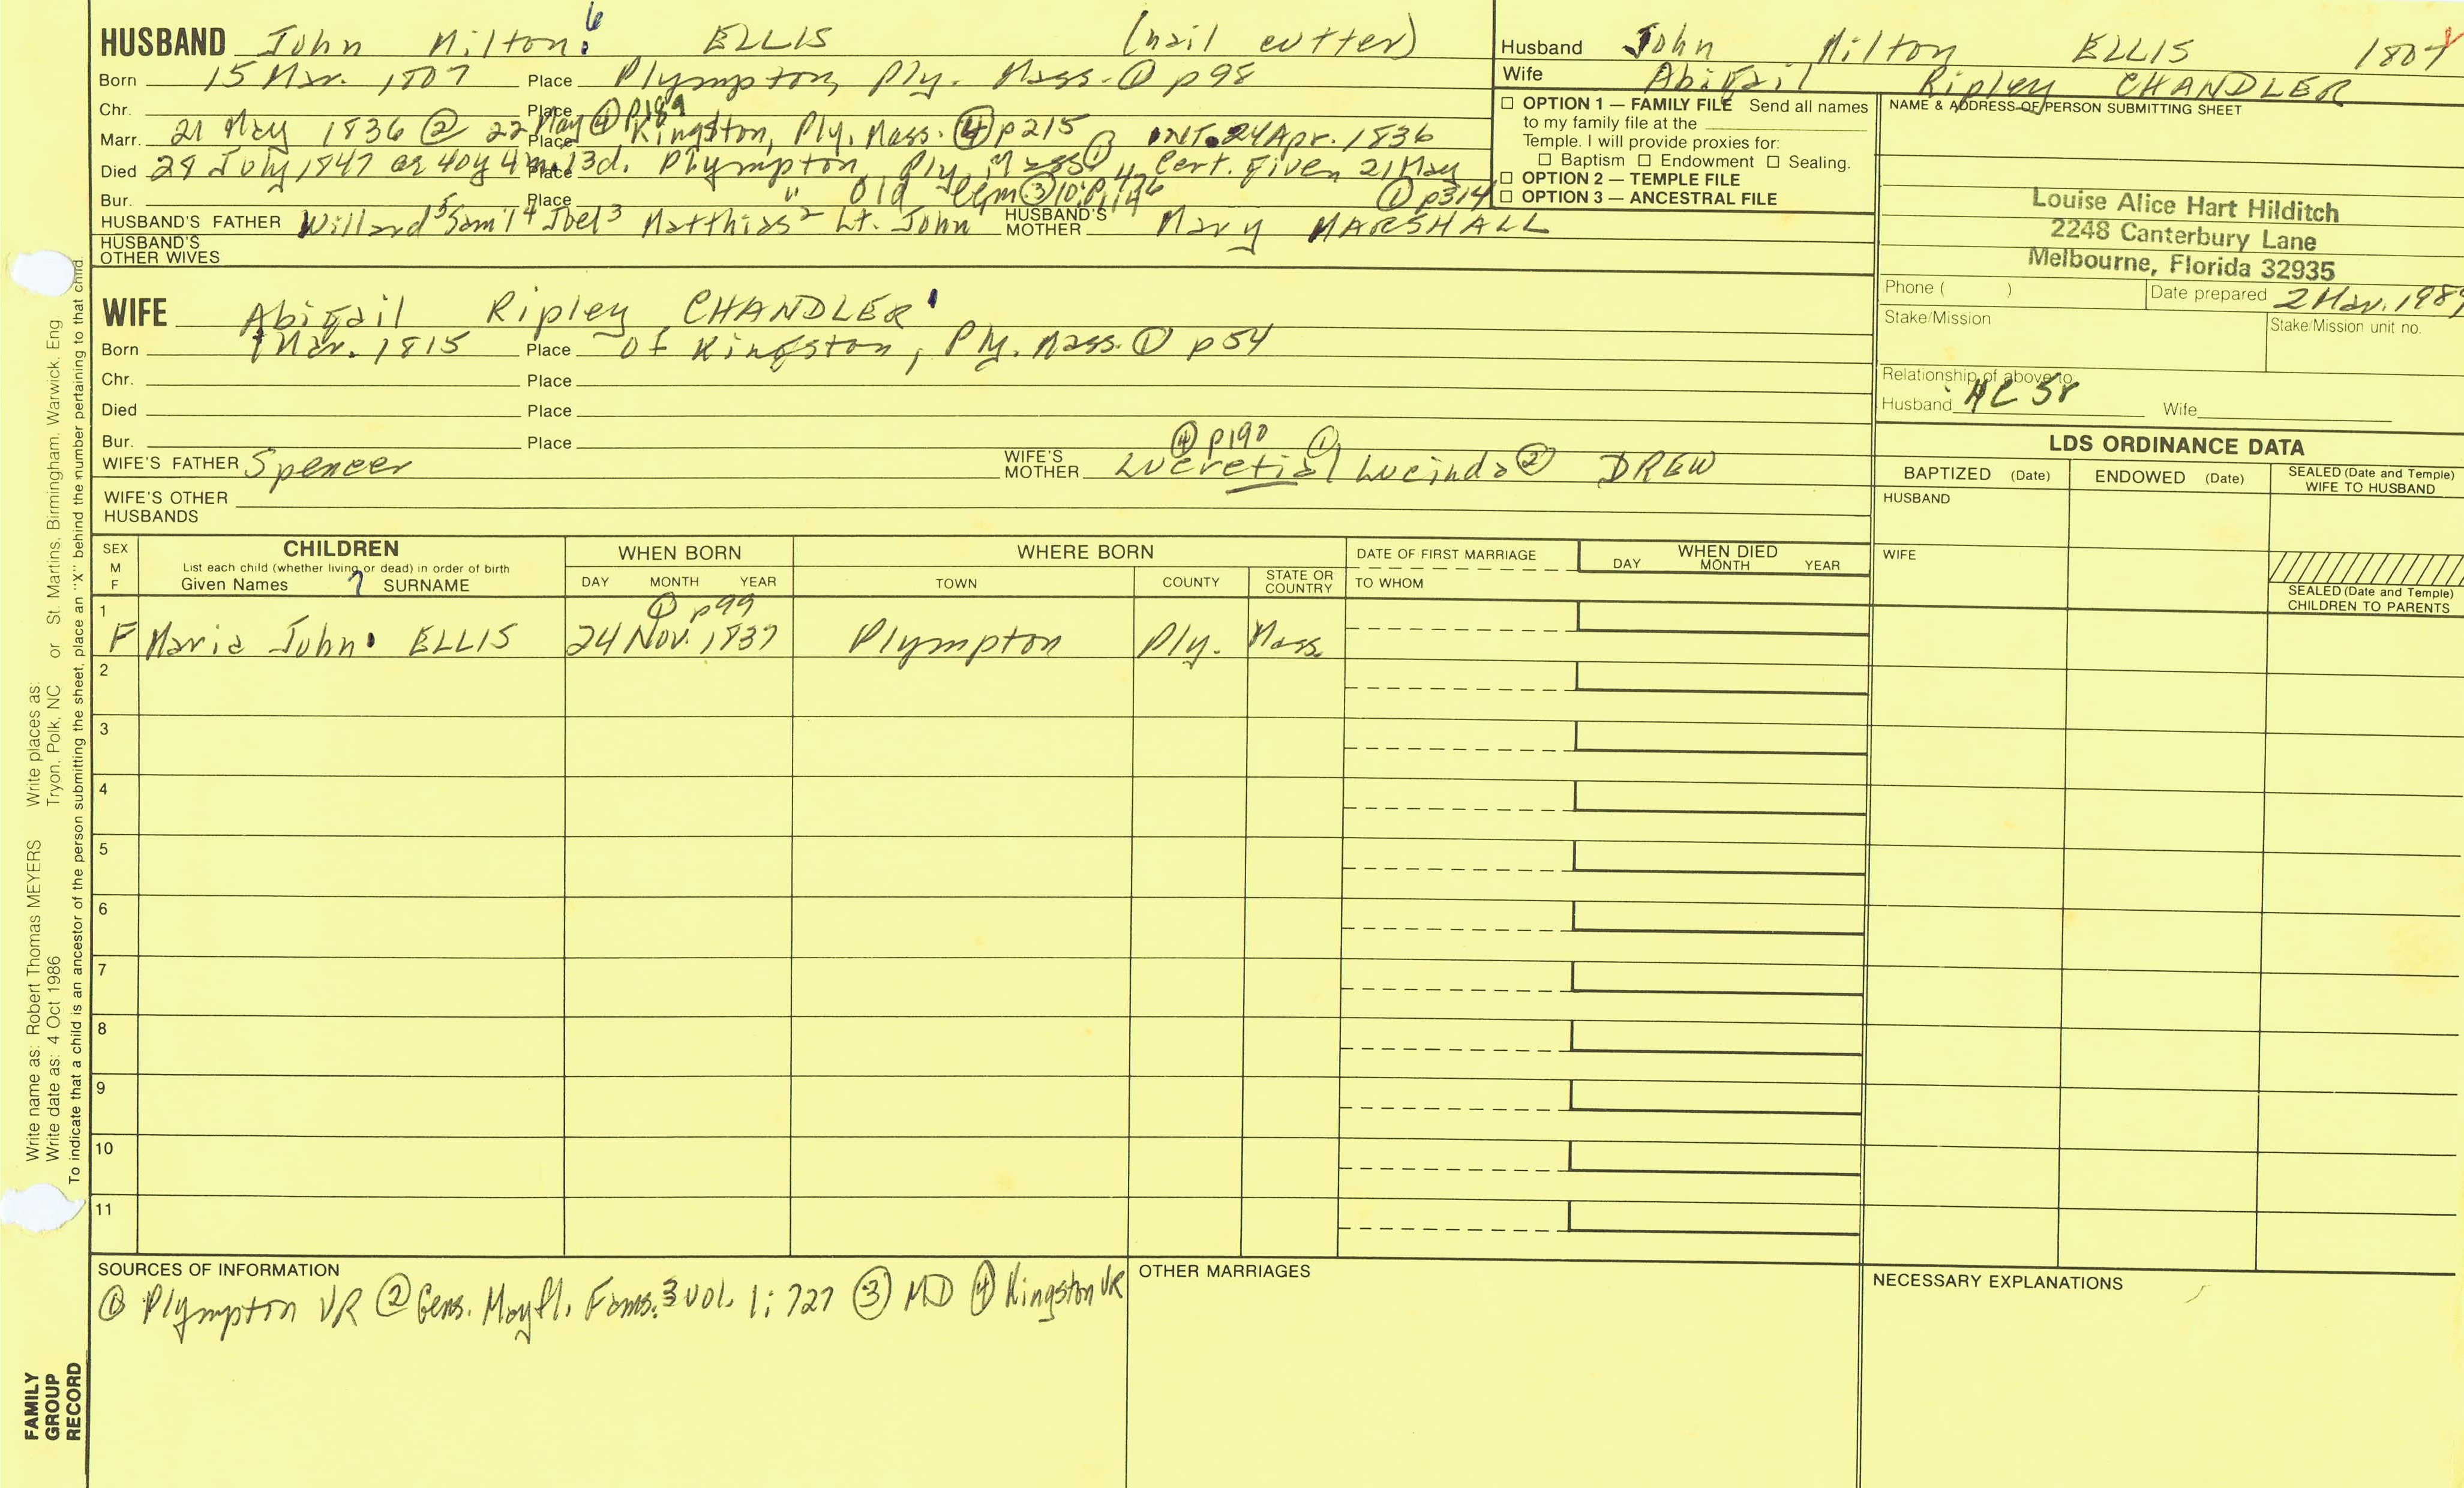 HUSBAND John Milton 6 ELLIS (nail cutter)
Born 15 Mar. 1807 Place Plympton, Ply. Mass. ① p98
Chr. Place
Marr. 21 May 1836 ② 22 May ④ p189 Place Kingston, Ply. Mass. ④ p215 INT. 24 Apr. 1836
Died 28 July 1847 as 40y 4m 13d. Place Plympton, Ply. Mass ① Cert. given 21 May ① p314
Bur. Place " Old Cem ③ 10:
HUSBAND'S FATHER Willard 5 Sam'l 4 Joel 3 Matthias 2 Lt. John HUSBAND'S MOTHER Mary MARSHALL
HUSBAND'S OTHER WIVES
WIFE Abigail Ripley CHANDLER
Born Mar. 1815 Place of Kingston, Ply. Mass. ① p54
Chr. Place
Died Place
Bur. Place
④ p190 ①
WIFE'S FATHER Spencer WIFE'S MOTHER Lucretia / Lucinda ② DREW
WIFE'S OTHER HUSBANDS
Husband John Milton ELLIS 1807
Wife Abigail Ripley CHANDLER
☐ OPTION 1 — FAMILY FILE Send all names
to my family file at the
Temple. I will provide proxies for:
☐ Baptism ☐ Endowment ☐ Sealing.
☐ OPTION 2 — TEMPLE FILE
☐ OPTION 3 — ANCESTRAL FILE
NAME & ADDRESS OF PERSON SUBMITTING SHEET
Louise Alice Hart Hilditch
2248 Canterbury Lane
Melbourne, Florida 32935
Phone ( ) Date prepared 2 Mar. 1989
Stake/Mission Stake/Mission unit no.
Relationship of above to:
Husband Wife
LDS ORDINANCE DATA
BAPTIZED (Date) ENDOWED (Date) SEALED (Date and Temple) WIFE TO HUSBAND
HUSBAND
WIFE
SEALED (Date and Temple)
CHILDREN TO PARENTS
SEX M F CHILDREN List each child (whether living or dead) in order of birth Given Names 7 SURNAME
WHEN BORN DAY MONTH YEAR
WHERE BORN TOWN COUNTY STATE OR COUNTRY
DATE OF FIRST MARRIAGE TO WHOM
WHEN DIED DAY MONTH YEAR
① p99
1 F Maria John ELLIS 24 Nov. 1837 Plympton Ply. Mass.
2
3
4
5
6
7
8
9
10
11
SOURCES OF INFORMATION
① Plympton VR ② Gens. Mayfl. Fams. 3 vol. 1: 727 ③ MD ④ Kingston VR
OTHER MARRIAGES
NECESSARY EXPLANATIONS
Write name as: Robert Thomas MEYERS Write places as: Tryon, Polk, NC or St. Martins, Birmingham, Warwick, Eng
Write date as: 4 Oct 1986
To indicate that a child is an ancestor of the person submitting the sheet, place an "X" behind the number pertaining to that child.
FAMILY
GROUP
RECORD